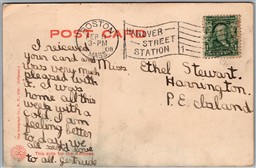 POST CARD
BOSTON
FEB
3-PM
08
MASS.
HANOVER
STREET
STATION
1
I received
your card and
was very much
pleased with
it. I was
home all this
week with a
cold. I am
feeling better
to day. We
all send love
to all. Gertrude
Miss Ethel Stewart.
Harrington.
P.E. Island